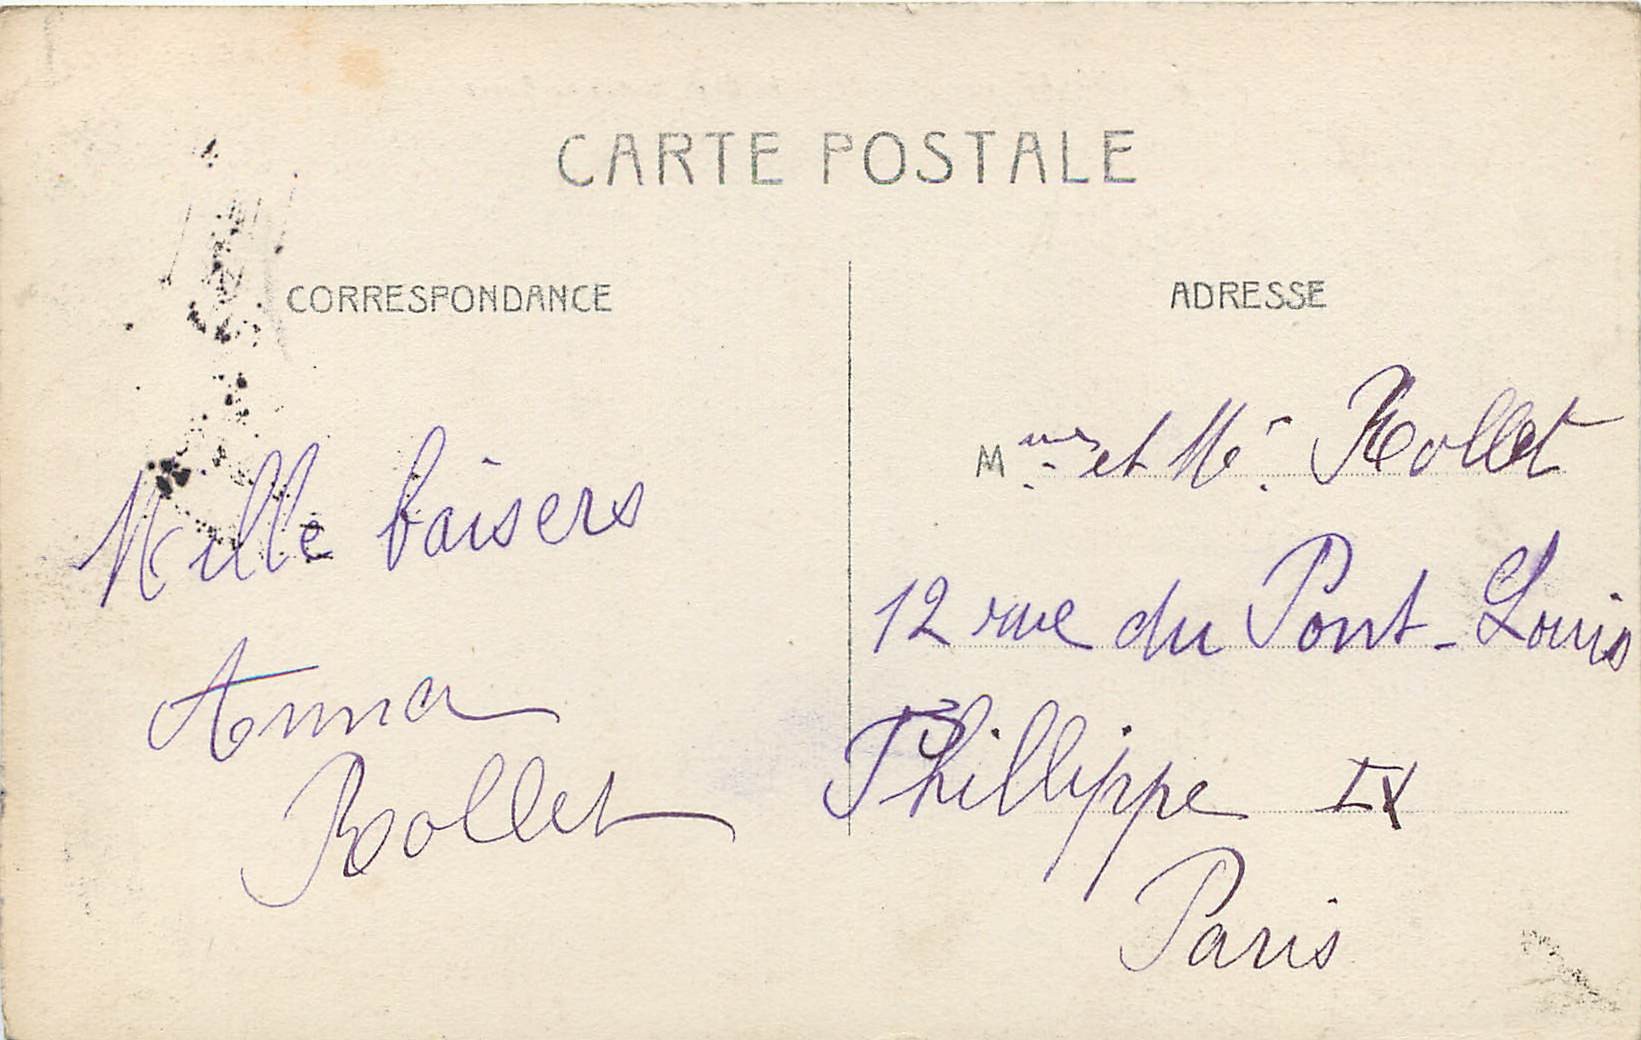 CARTE POSTALE
CORRESPONDANCE
Mille baisers
Anna
Rollet
ADRESSE
M et Mr Rollet
12 rue du Pont-Louis
Phillippe
Paris